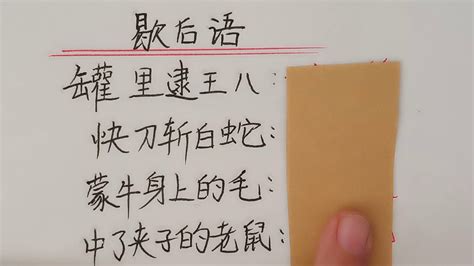 歇后语
罐里逮王八:
快刀斩白蛇:
蒙牛身上的毛:
中了夹子的老鼠: